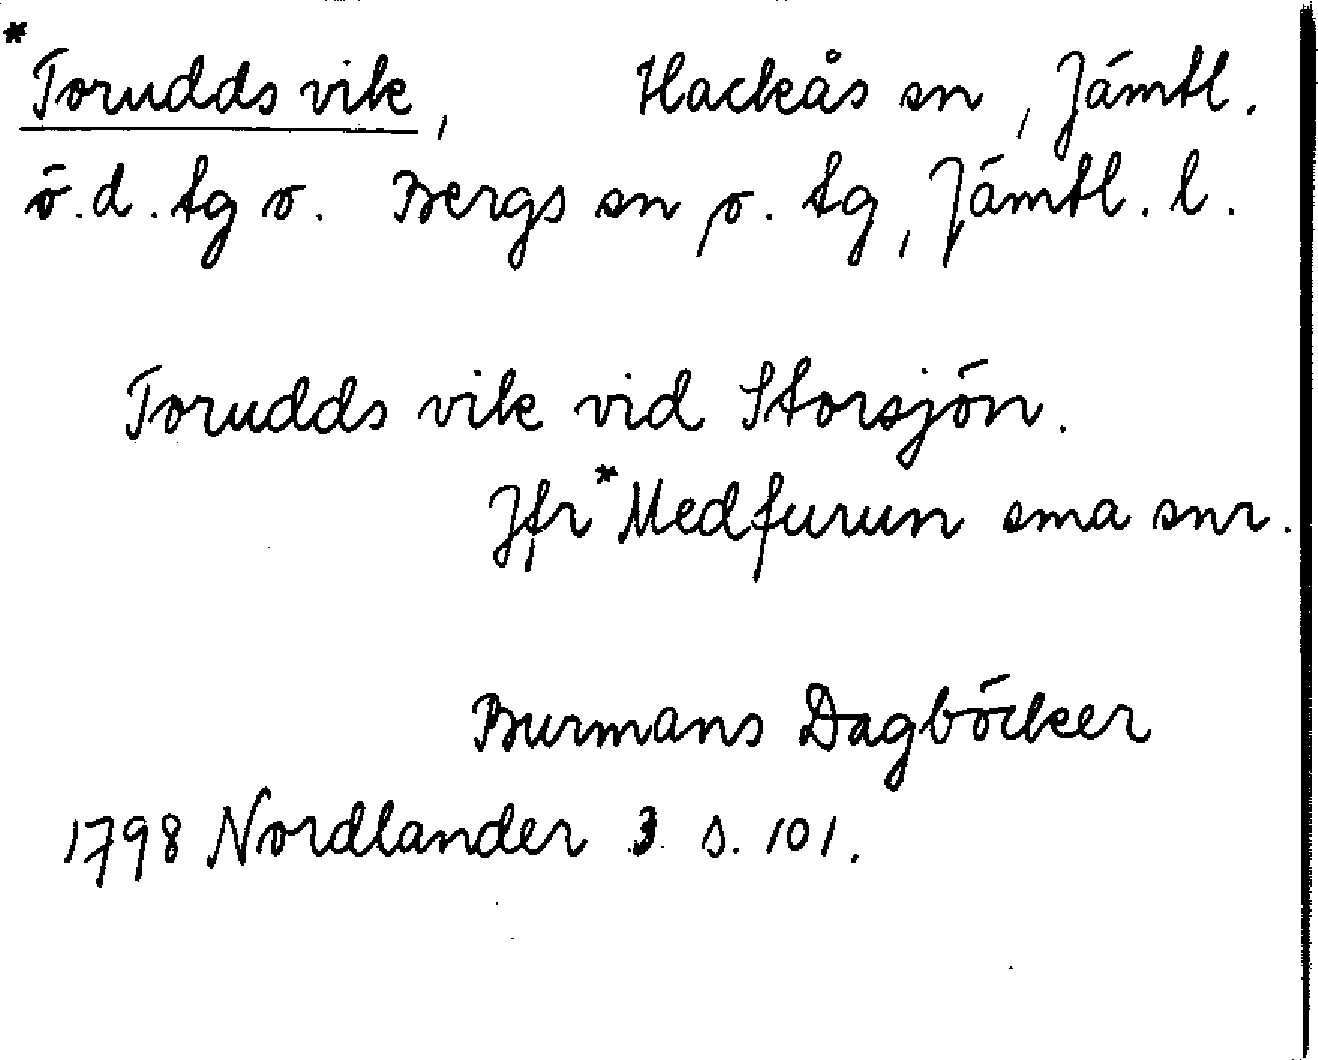 *Torudds vik, Hackås sn, Jämtl.
ö.d. tg o. Bergs sn o. tg, Jämtl. l.
Torudds vik vid Storsjön.
Jfr *Medfurun sma snr.
Burmans Dagböcker
1798 Nordlander 3 s. 101.